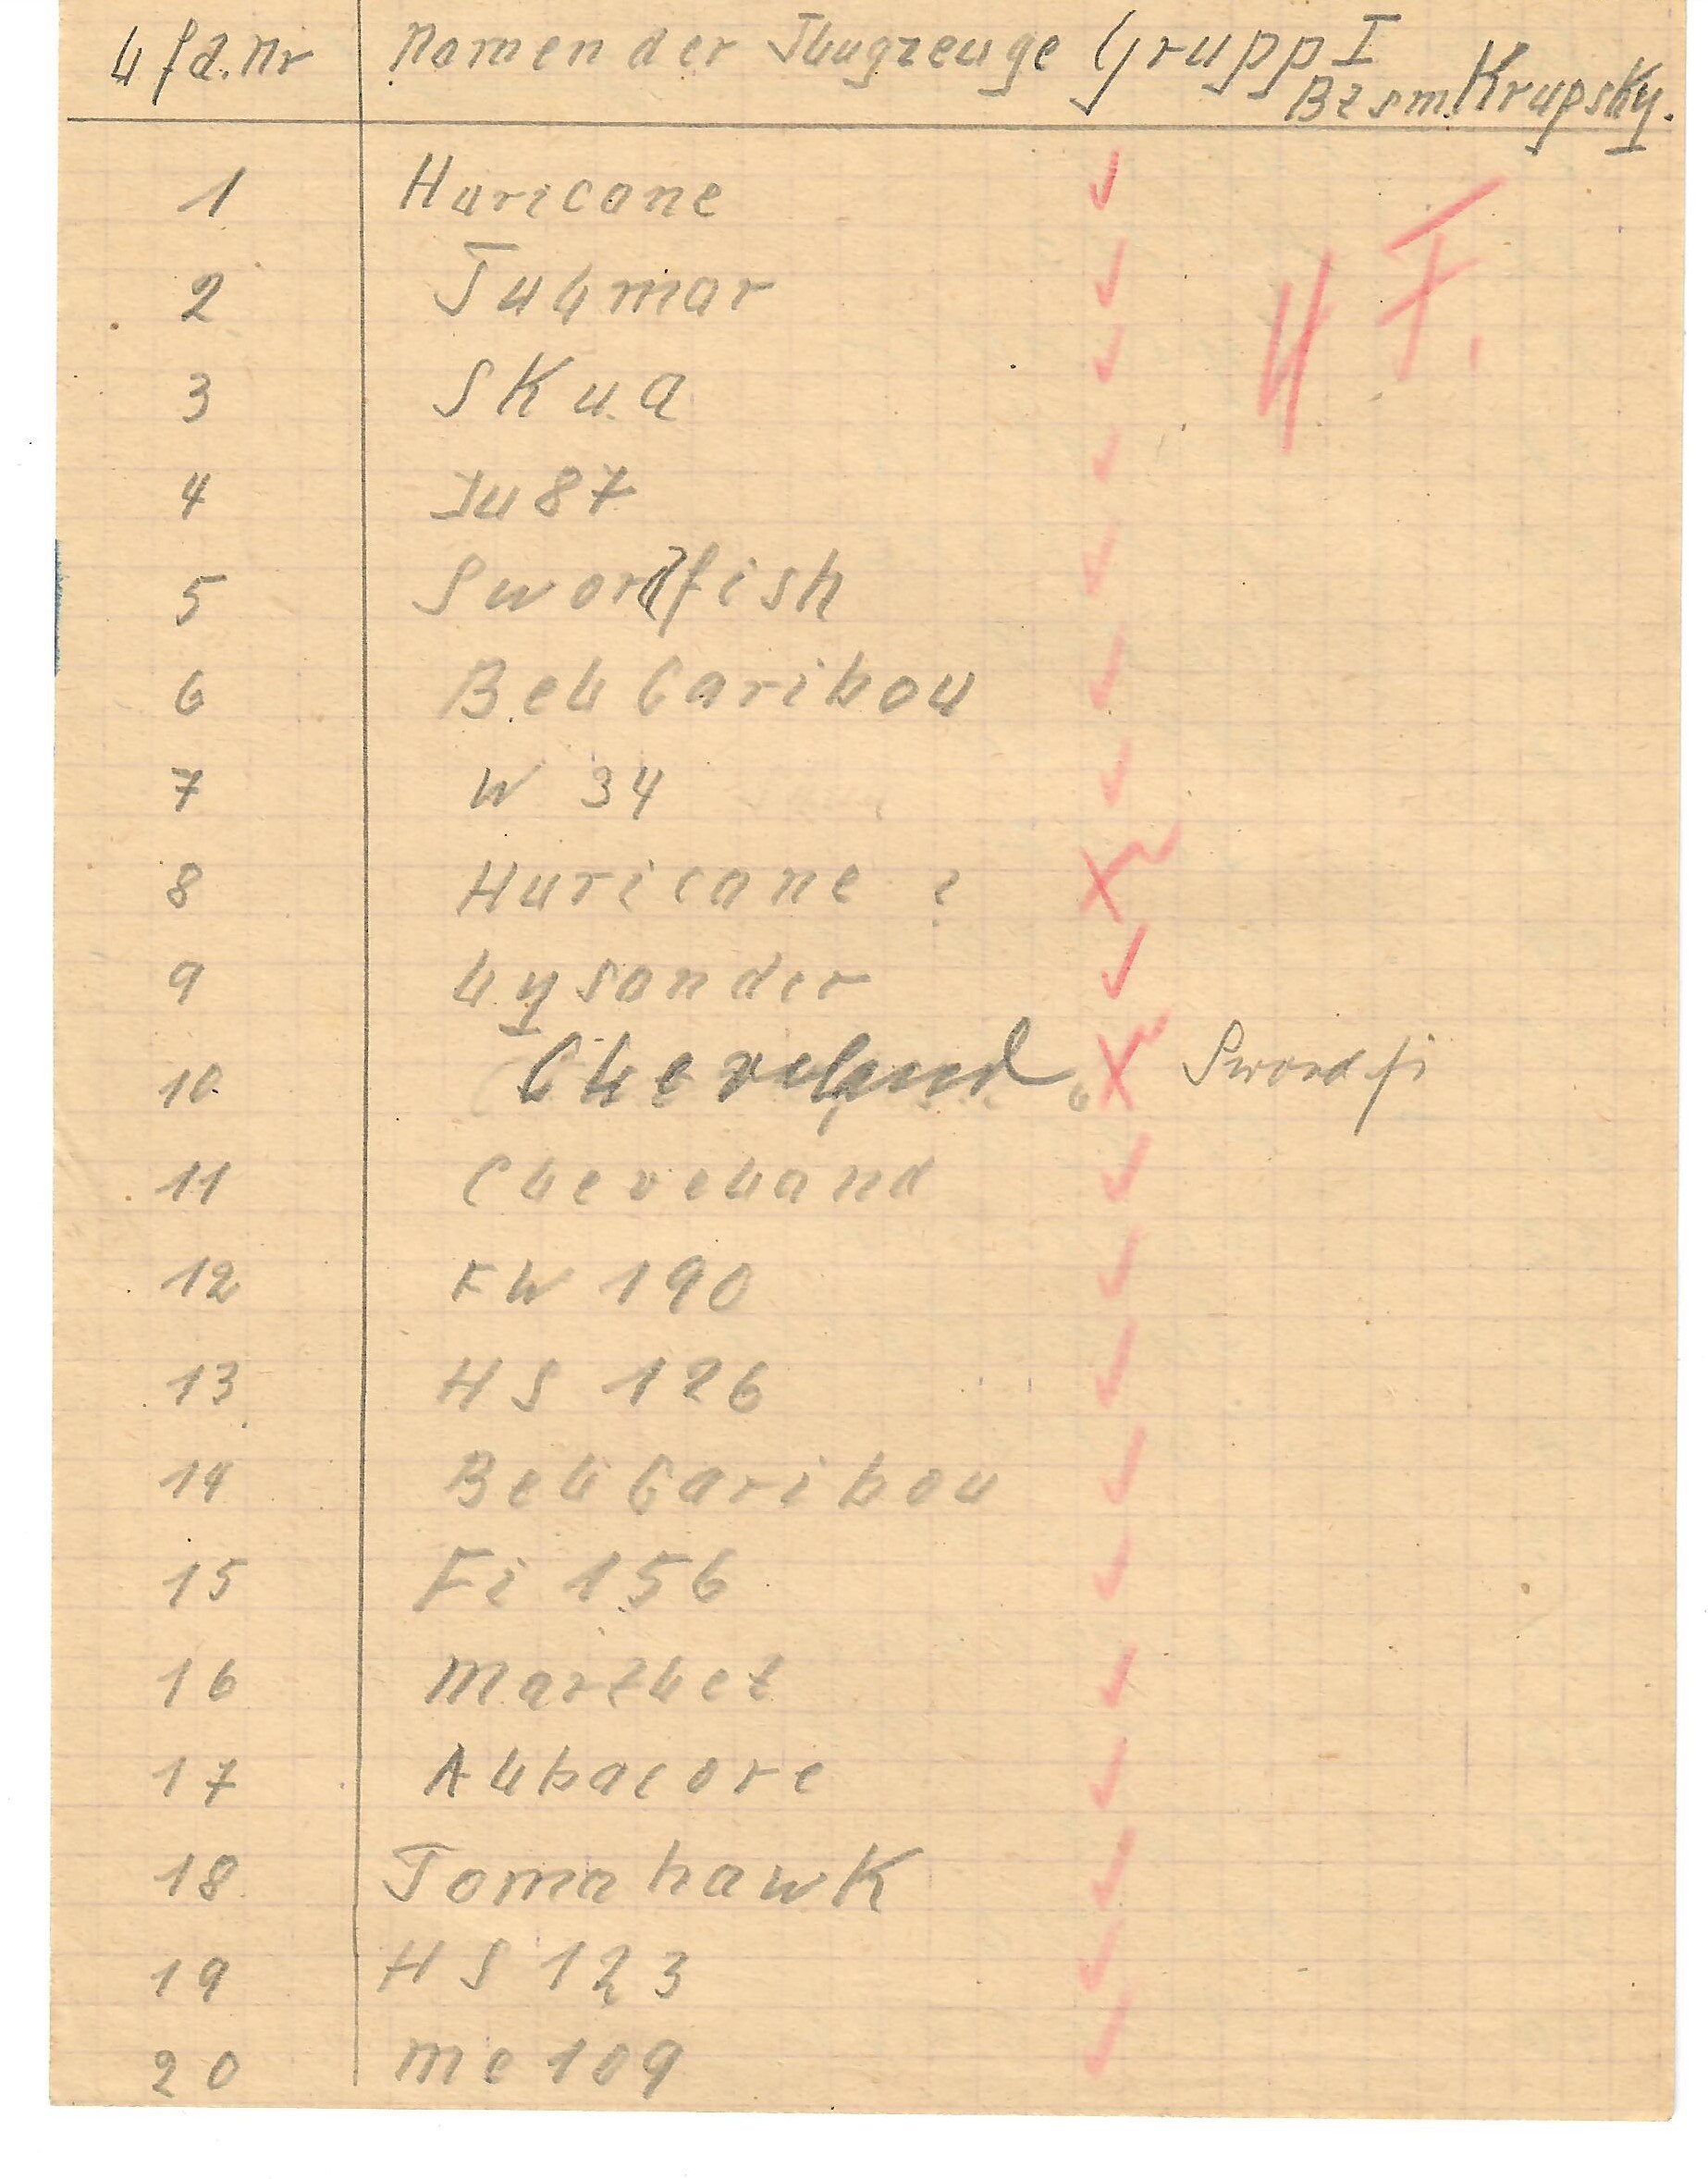 Lfd. Nr Namen der Flugzeuge Grupp I
Bzsm. Krupsky.
1 Huricane
2 Fulmar
3 Skua
4 Ju 87
5 Swordfish
6 Bel Caribou
7 W 34
8 Huricane ?
9 Lysander
10 Cleveland Swordfi
11 Cleveland
12 FW 190
13 HS 126
14 Bel Caribou
15 Fi 156
16 Martlet
17 Albacore
18 Tomahawk
19 HS 123
20 Me 109